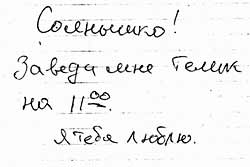 Солнышко!
Заведи мне телик
на 11⁰⁰.
Я тебя люблю.